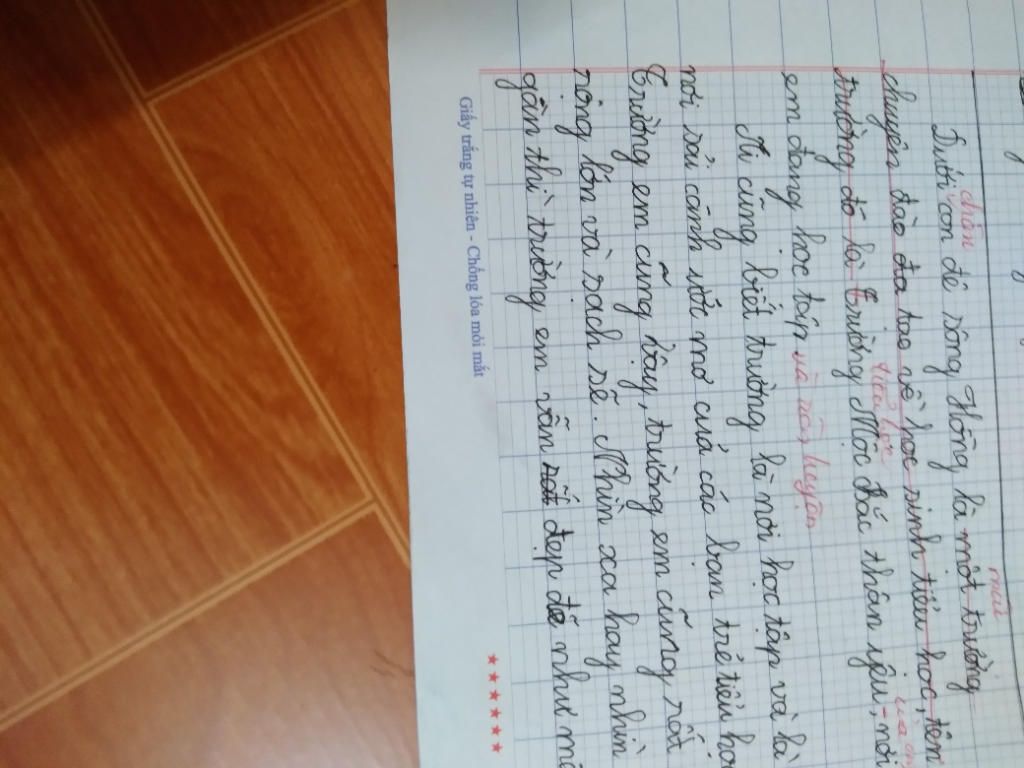 chân
Dưới con đê sông Hồng là một trường
mái
chuyên đào đa tạo về học sinh tiểu học, tên
tiểu học
trường đó là Trường Mộc Bắc thân yêu, nơi
em đang học tập và rèn luyện
Ai cũng biết trường là nơi học tập và là
nơi rải cánh ước mơ của các bạn trẻ tiểu họ
Trường em cũng vậy, trường em cũng rất
rộng lớn và sạch sẽ. Nhìn xa hay nhìn
gần thì trường em vẫn rất đẹp đẽ như m
Giấy trắng tự nhiên - Chống lóa mỏi mắt